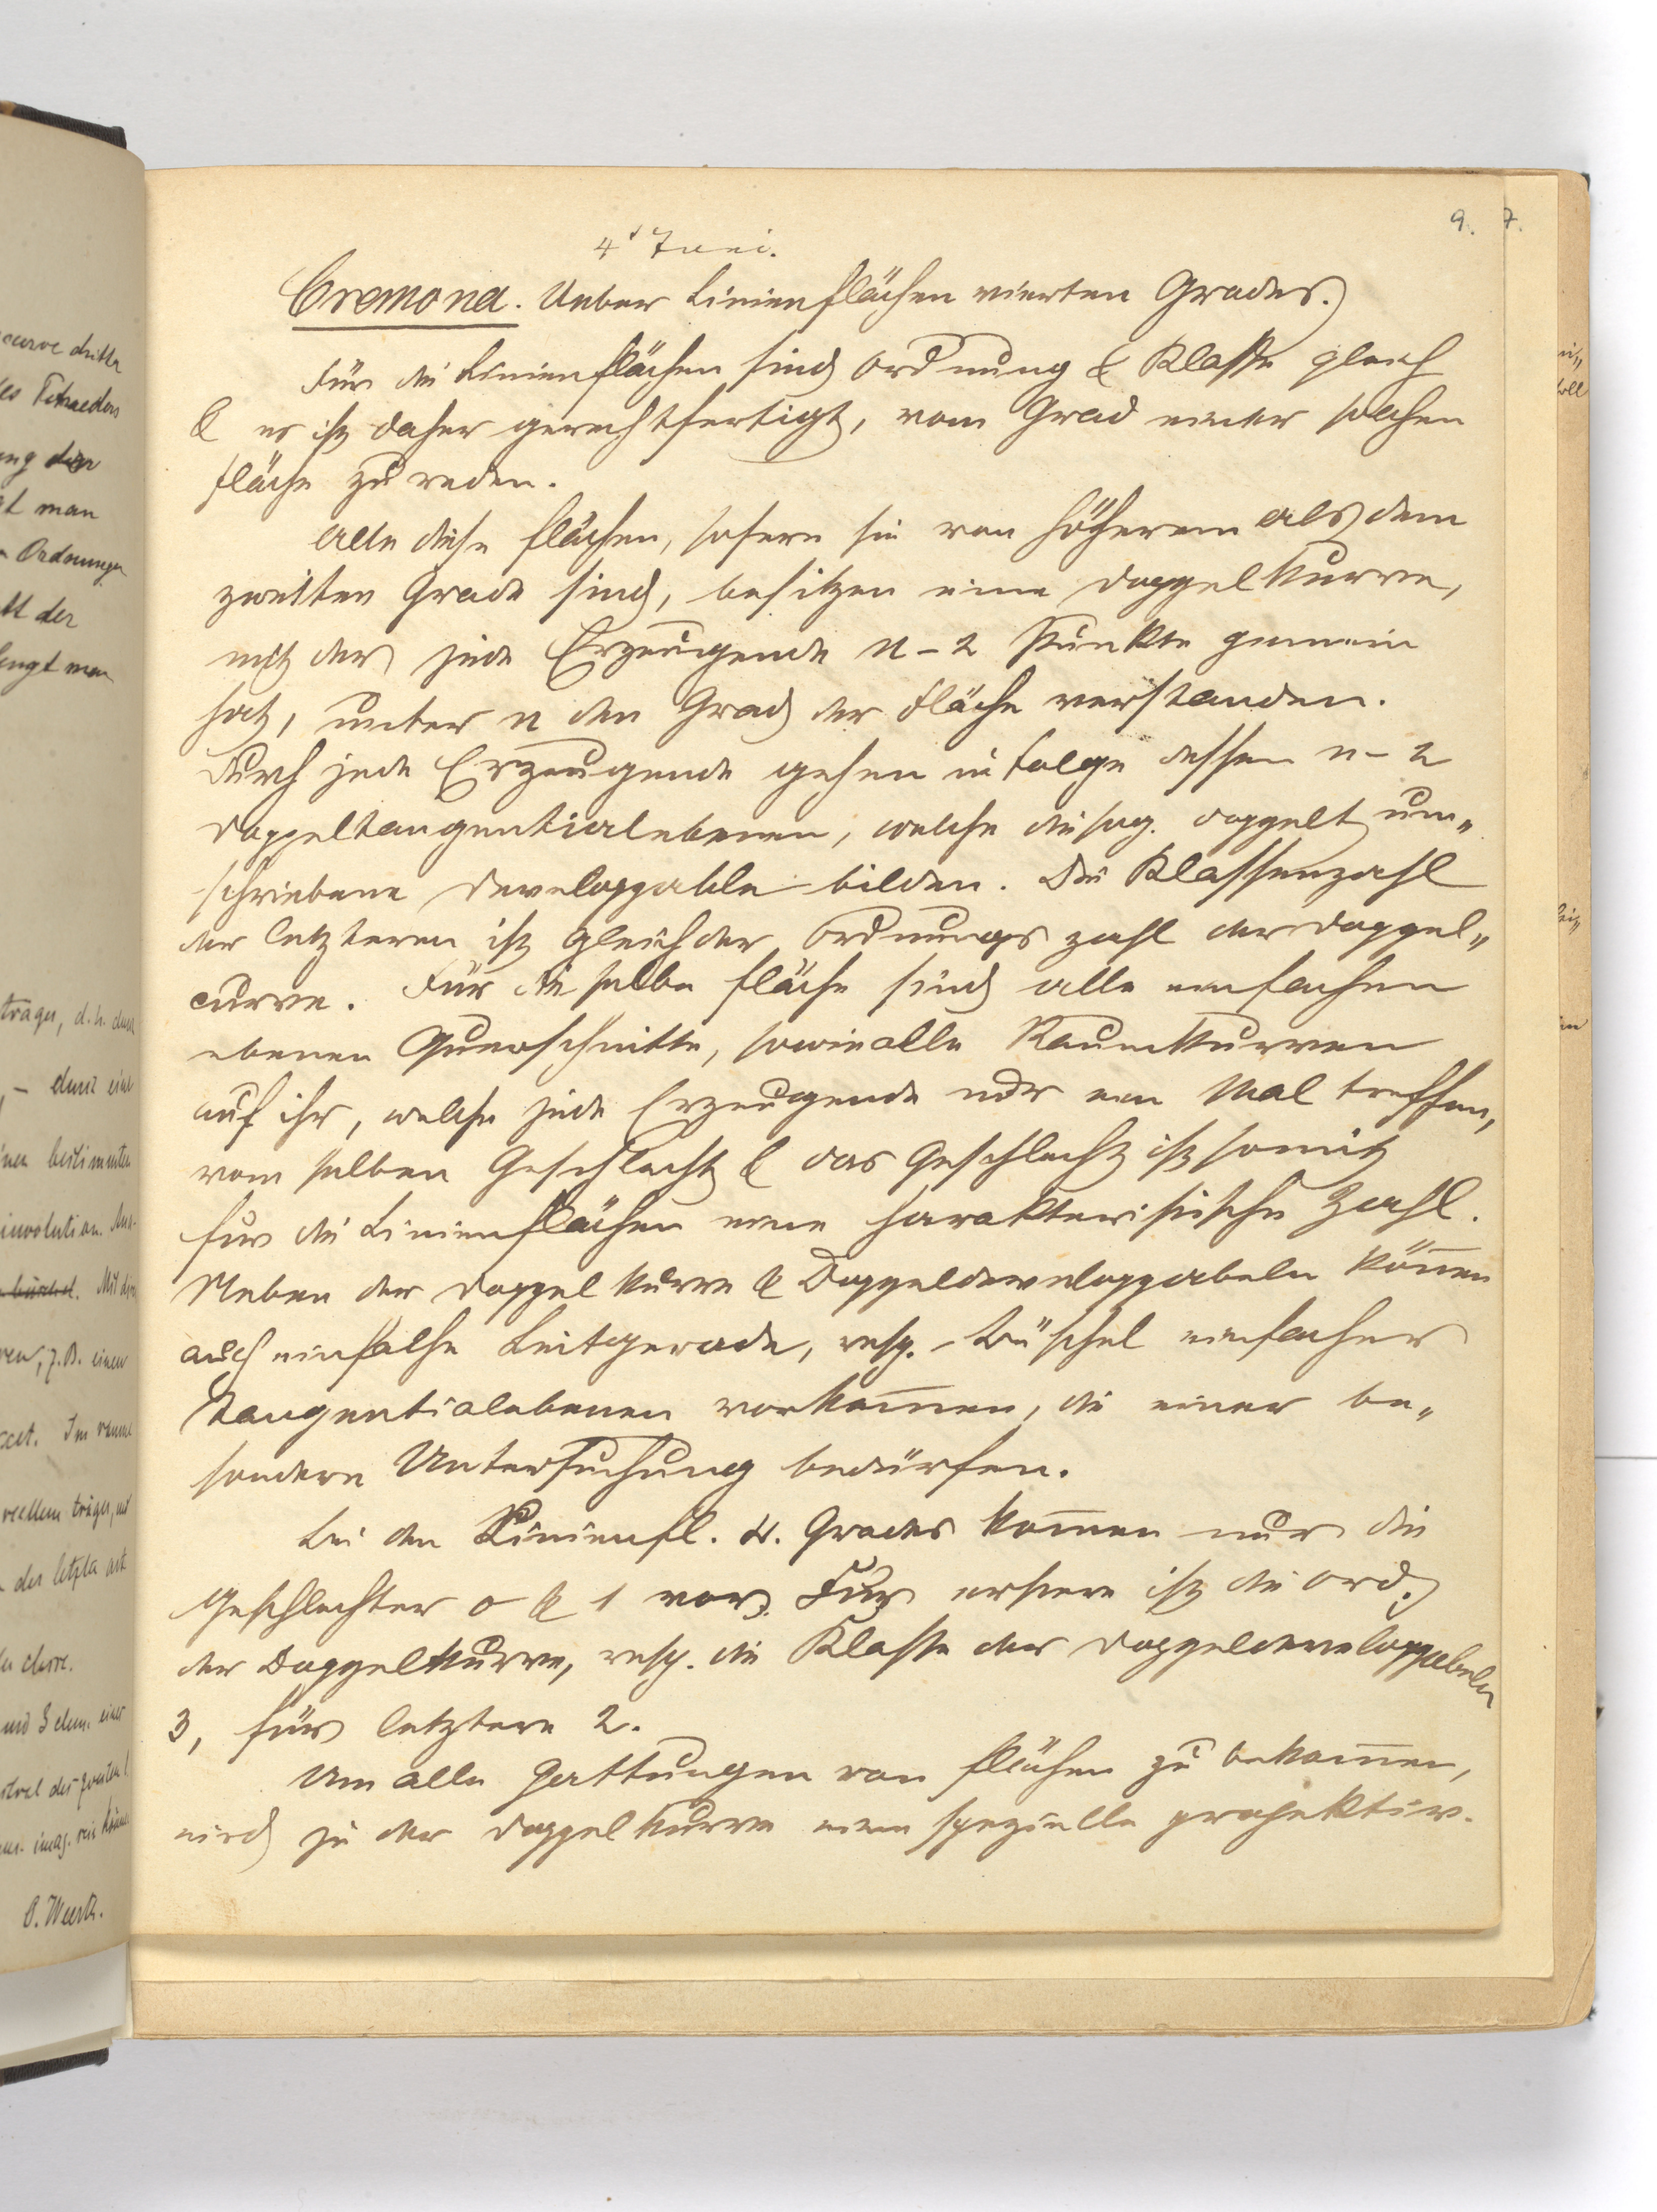 9. 7.
4' Juni.
Cremona. Ueber Linienflächen vierten Grades.
Für die Linienflächen sind Ordnung & Klasse gleich
& es ist daher gerechtfertigt, vom Grad einer solchen
Fläche zu reden.
Alle diese Flächen, sofern sie von höherem als dem
zweiten Grade sind, besitzen eine Doppelkurve,
mit der jede Erzeugende n-2 Punkte gemein
hat, unter n den Grad der Fläche verstanden.
Durch jede Erzeugende gehen in Folge dessen n-2
Doppeltangentialebenen, welche die sog. doppelt um„
schriebene Developpable bilden. Die Klassenzahl
der letzteren ist gleich der Ordnungszahl der Doppel„
curve. Für dieselbe Fläche sind alle einfachen
ebenen Querschnitte, sowie alle Raumkurven
auf ihr, welche jede Erzeugende nur ein Mal treffen,
vom selben Geschlecht & das Geschlecht ist somit
für die Linienflächen eine charakteristische Zahl.
Neben der Doppelkurve & Doppeldeveloppabeln können
auch einfache Leitgerade, resp. Büschel einfacher
Tangentialebenen vorkommen, die einer be„
sondern Untersuchung bedürfen.
Bei den Linienfl. 4. Grades kommen nur die
Geschlechter 0 & 1 vor. Für erstere ist die Ord.
der Doppelkurve, resp. die Klasse der Doppeldeveloppabeln
3, für letztere 2.
Um alle Gattungen von Flächen zu bekommen,
wird je der Doppelkurve eine spezielle projektiv.
curve dritter
des Tetraeders
man
Ordnungen
der
träger, d.h. durch
durch eine
einen bestimmten
involution.
büschel. Mit den
z.B. einen
reellem träger, und
der letzten art
und 3 einer
der zweiten
imag. sein können